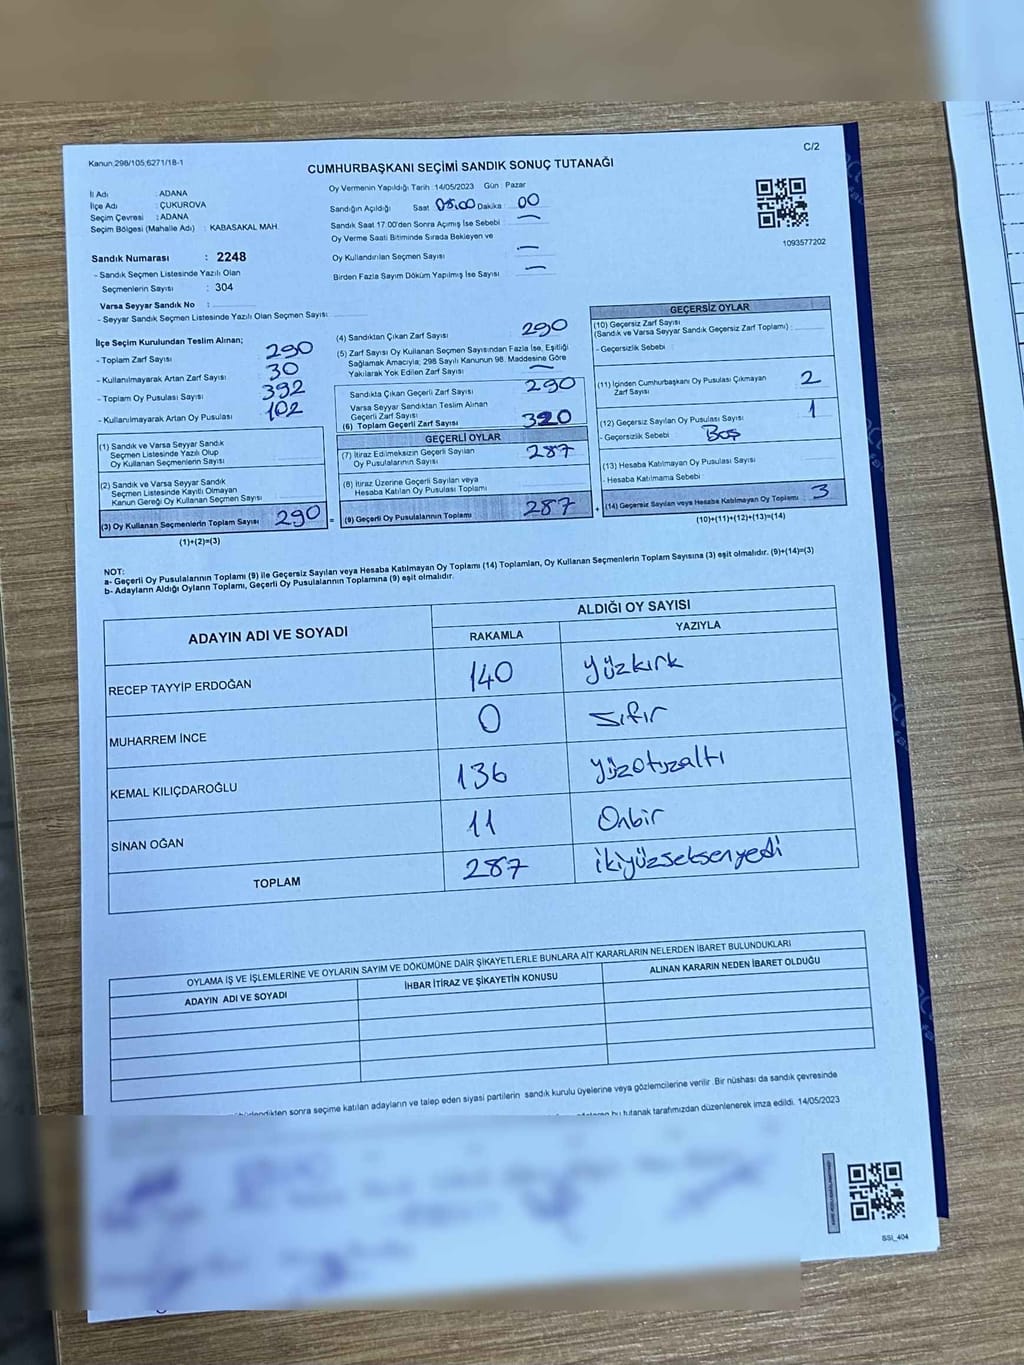 Kanun:298/105;6271/18-1
C/2
CUMHURBAŞKANI SEÇİMİ SANDIK SONUÇ TUTANAĞI
İl Adı : ADANA
İlçe Adı : ÇUKUROVA
Seçim Çevresi : ADANA
Seçim Bölgesi (Mahalle Adı) : KABASAKAL MAH.
Sandık Numarası : 2248
- Sandık Seçmen Listesinde Yazılı Olan
Seçmenlerin Sayısı : 304
Varsa Seyyar Sandık No :
- Seyyar Sandık Seçmen Listesinde Yazılı Olan Seçmen Sayısı :
Oy Vermenin Yapıldığı Tarih : 14/05/2023 Gün : Pazar
Sandığın Açıldığı Saat 08:00 Dakika : 00
Sandık Saat 17:00'den Sonra Açımış İse Sebebi : —
Oy Verme Saati Bitiminde Sırada Bekleyen ve
Oy Kullandırılan Seçmen Sayısı : —
Birden Fazla Sayım Döküm Yapılmış İse Sayısı : —
1093577202
İlçe Seçim Kurulundan Teslim Alınan;
- Toplam Zarf Sayısı : 290
- Kullanılmayarak Artan Zarf Sayısı : 30
- Toplam Oy Pusulası Sayısı : 392
- Kullanılmayarak Artan Oy Pusulası : 102
(1) Sandık ve Varsa Seyyar Sandık
Seçmen Listesinde Yazılı Olup
Oy Kullanan Seçmenlerin Sayısı
(2) Sandık ve Varsa Seyyar Sandık
Seçmen Listesinde Kayıtlı Olmayan
Kanun Gereği Oy Kullanan Seçmen Sayısı
(3) Oy Kullanan Seçmenlerin Toplam Sayısı 290 =
(1)+(2)=(3)
(4) Sandıktan Çıkan Zarf Sayısı : 290
(5) Zarf Sayısı Oy Kullanan Seçmen Sayısından Fazla İse, Eşitliği
Sağlamak Amacıyla; 298 Sayılı Kanunun 98. Maddesine Göre
Yakılarak Yok Edilen Zarf Sayısı : —
Sandıkta Çıkan Geçerli Zarf Sayısı : 290
Varsa Seyyar Sandıktan Teslim Alınan
Geçerli Zarf Sayısı
(6) Toplam Geçerli Zarf Sayısı : 320
GEÇERLİ OYLAR
(7) İtiraz Edilmeksizin Geçerli Sayılan
Oy Pusulalarının Sayısı : 287
(8) İtiraz Üzerine Geçerli Sayılan veya
Hesaba Katılan Oy Pusulası Toplamı
(9) Geçerli Oy Pusulalarının Toplamı 287 +
GEÇERSİZ OYLAR
(10) Geçersiz Zarf Sayısı
(Sandık ve Varsa Seyyar Sandık Geçersiz Zarf Toplamı) :
- Geçersizlik Sebebi :
(11) İçinden Cumhurbaşkanı Oy Pusulası Çıkmayan
Zarf Sayısı : 2
(12) Geçersiz Sayılan Oy Pusulası Sayısı : 1
- Geçersizlik Sebebi : Boş
(13) Hesaba Katılmayan Oy Pusulası Sayısı :
- Hesaba Katılmama Sebebi :
(14) Geçersiz Sayılan veya Hesaba Katılmayan Oy Toplamı : 3
(10)+(11)+(12)+(13)=(14)
NOT:
a- Geçerli Oy Pusulalarının Toplamı (9) ile Geçersiz Sayılan veya Hesaba Katılmayan Oy Toplamı (14) Toplamları, Oy Kullanan Seçmenlerin Toplam Sayısına (3) eşit olmalıdır. (9)+(14)=(3)
b- Adayların Aldığı Oyların Toplamı, Geçerli Oy Pusulalarının Toplamına (9) eşit olmalıdır.
ADAYIN ADI VE SOYADI ALDIĞI OY SAYISI
RAKAMLA YAZIYLA
RECEP TAYYİP ERDOĞAN 140 yüzkırk
MUHARREM İNCE 0 sıfır
KEMAL KILIÇDAROĞLU 136 yüzotuzaltı
SİNAN OĞAN 11 Onbir
TOPLAM 287 ikiyüzseksenyedi
OYLAMA İŞ VE İŞLEMLERİNE VE OYLARIN SAYIM VE DÖKÜMÜNE DAİR ŞİKAYETLERLE BUNLARA AİT KARARLARIN NELERDEN İBARET BULUNDUKLARI
ADAYIN ADI VE SOYADI İHBAR İTİRAZ VE ŞİKAYETİN KONUSU ALINAN KARARIN NEDEN İBARET OLDUĞU
sonra seçime katılan adayların ve talep eden siyasi partilerin sandık kurulu üyelerine veya gözlemcilerine verilir. Bir nüshası da sandık çevresinde
bu tutanak tarafımızdan düzenlenerek imza edildi. 14/05/2023
SSI_404